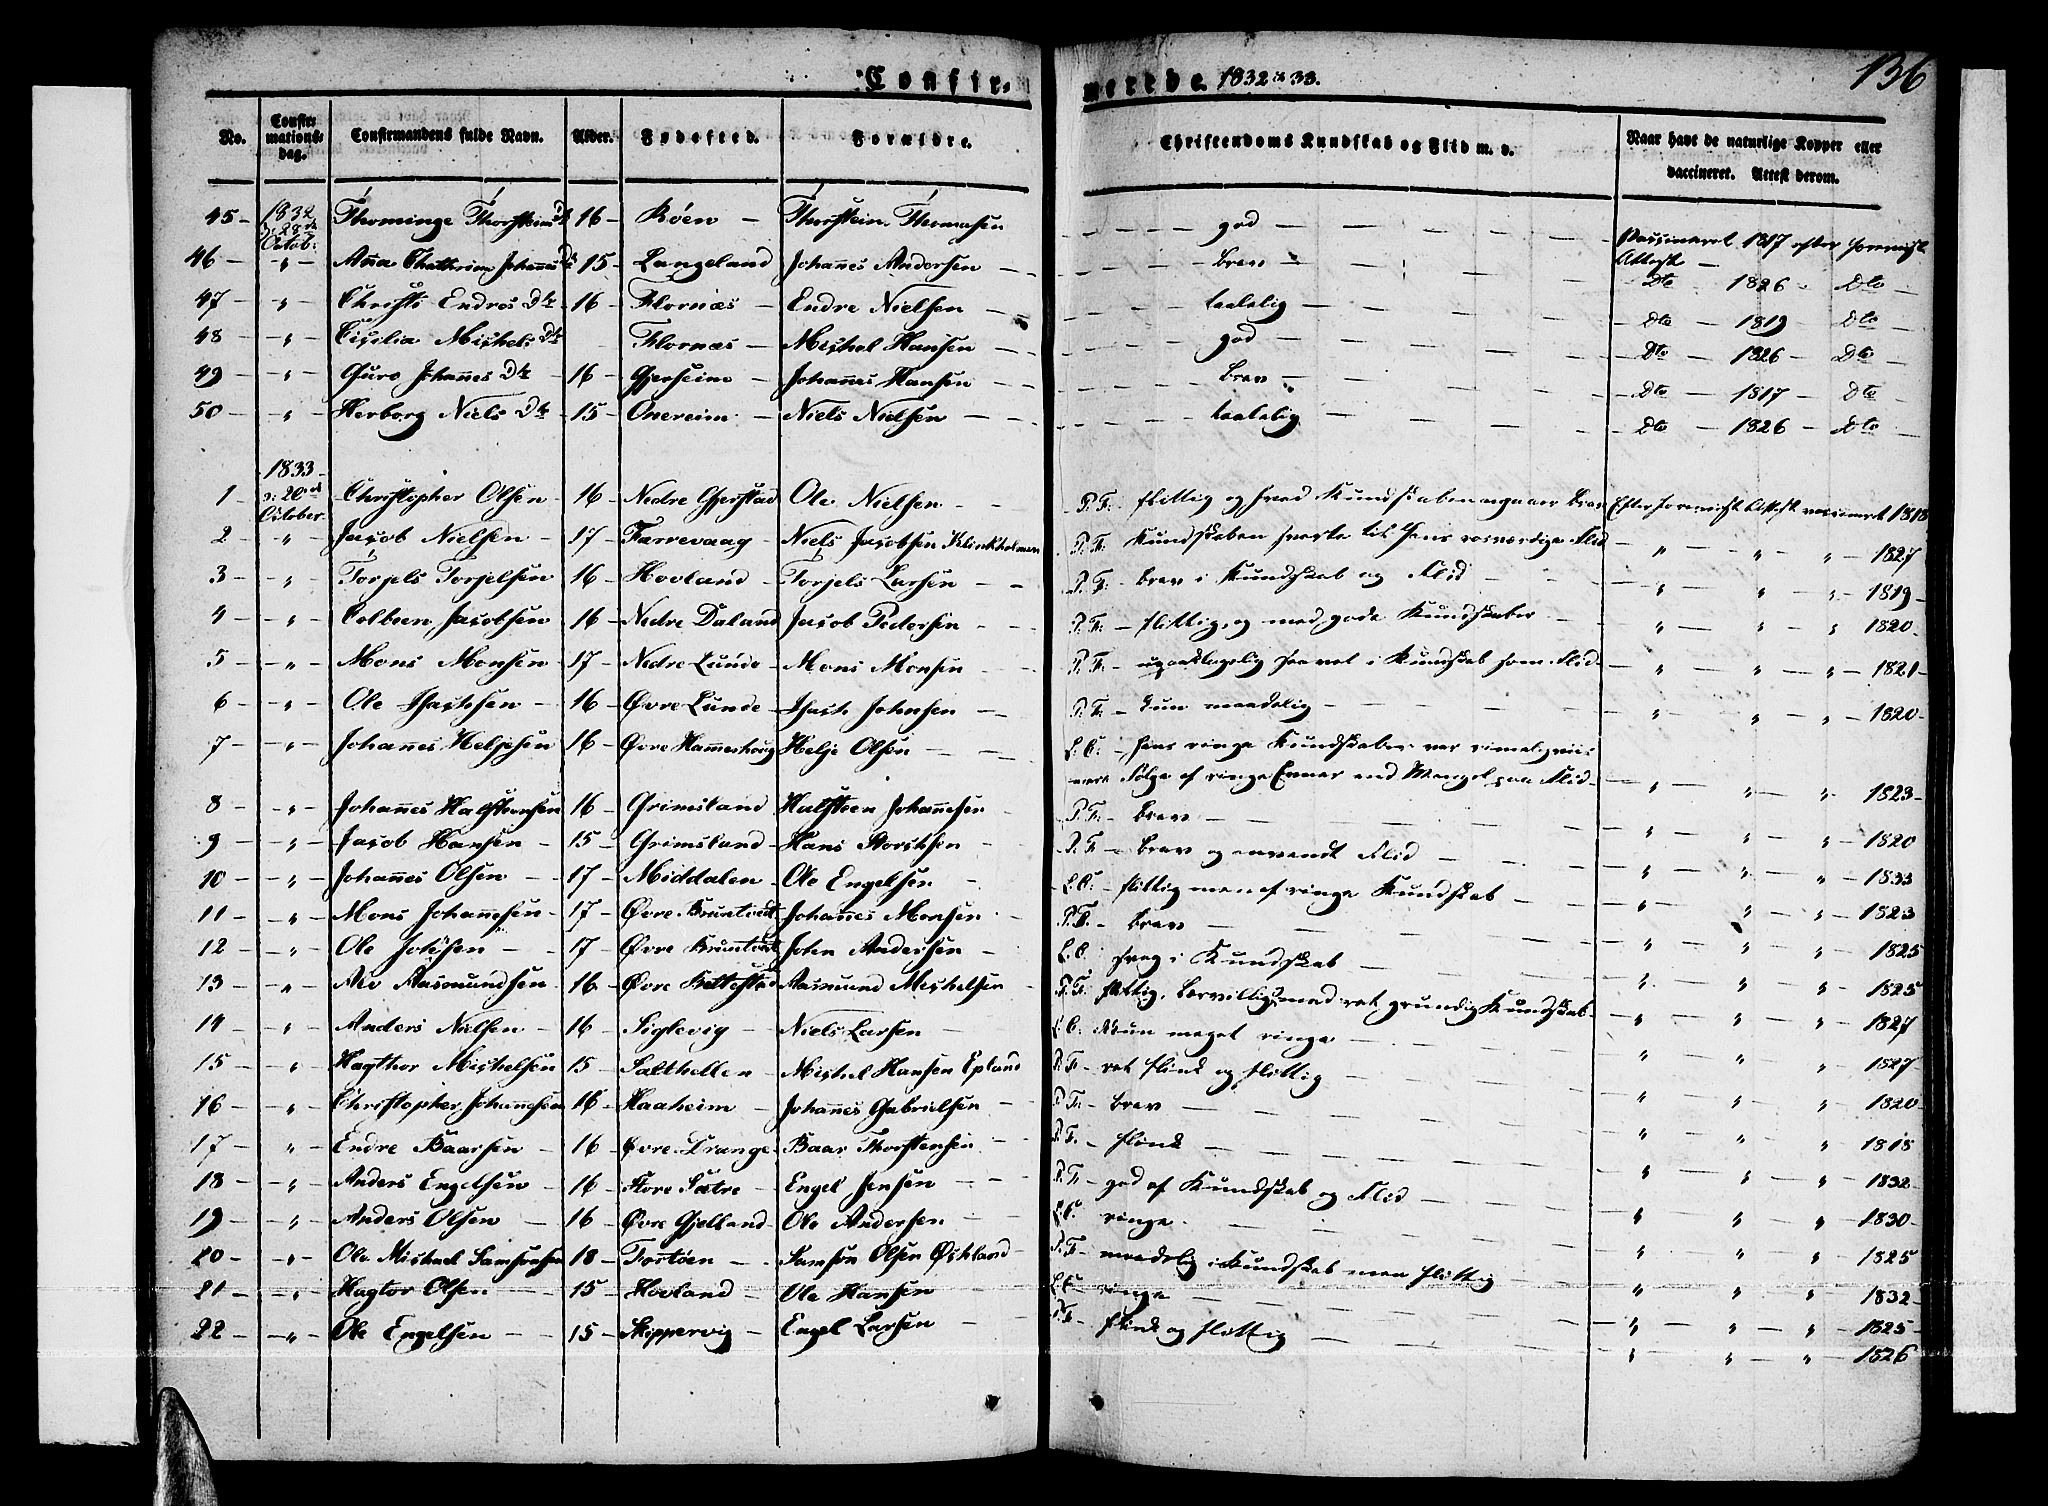 136
Confirmerede 1832 & 33.
No. Confirmationsdag. Confirmandens fulde Navn. Alder. Fødested. Forældre. Christendoms Kundskab og Flid m. v. Naar havt de naturlige Kopper eller vaccineret. Attest derom.
45 – 1832 d: 28de Octob: Thorstens Dtr 16 – Røen – Thorstein Thomasen god Vaccineret 1817 efter Attest
46 – " – Anna Chatherina Johannes Dtr 15 – Langeland Johannes Andersen – brav – Dto – 1826 – Dto
47 – " – Endres Dtr 16 – Flornæs – Endre Nielsen – taalelig Dto – 1819 – Dto
48 – " – Cicilia Michels Dtr Flornæs – Michel Hansen – god Dto – 1826 – Dto
49 – " – Guro Johannes Dtr – 16 – Gjerseim – Johannes Hansen – brav – Dto – 1817 – Dto
50 – " – Herborg Niels Dtr 15 – Onereim – Niels Nielsen – taalelig Dto – 1826 – Dto
1833
1 – d: 20de October Christopher Olsen – 16 – Nedre Gjerstad Ole Nielsen – P. F. – flittig og hvad Kundskaben angaaer brav Efter Attest 1818
2 – " – Jacob Nielsen – 17 – Færrevaag – Niels Jacobsen Klinkholmen P. F. Kundskaben svarte til hans Flid – " – " – " – 1827
3 – " – Torjels Torjelsen 16 – Hovland – Torjels Larsen – P. F. – brav i Kundskab og Flid – " – " – " – 1819
4 – " – Colbeen Jacobsen 16 – Nedre Daland Jacob Pedersen – P. F. – flittig, og med gode Kundskaber – " – " – " – 1820
5 – " – Mons Monsen 17 – Nedre Lunde – Mons Monsen – P. F. – upaaklagelig saavel i Kundskab som Flid – " – " – " – 1821
6 – " – Ole – 16 – Øvre Lunde – Johnsen – P. F. – kun maadelig – " – " – " – 1820
7 – " – Johannes Heljesen 16 – Øvre Hammerhoug Helje Olsen – hans ringe Kundskaber var
Følge af ringe Evner end Mangel paa Flid – " – " – " – 1823
8 – " – Johannes Halsteensen 16 – Grimsland – Halsteen Johannesen P. F. – brav – " – " – " – 1820
9 – " – Jacob Hansen – 15 – Grimsland – Hans P. F. – brav og anvendt Flid – " – " – " – 1833
10 – " – Johannes Olsen – 17 – Middalen – Ole Engelsen – flittig men af ringe Kundskab – " – " – " – 1823
11 – " – Mons Johannesen – 17 – Øvre Johannes Monsen – P. F. – brav – " – " – " – 1825
12 – " – Ole – 17 – Øvre John Andersen – svag i Kundskab – " – " – " – 1825
13 – " – Aasmundsen 16 – Øvre Aasmund Michelsen – P. F. flittig, lærvillig, med ret grundig Kundskab – " – " – " – 1827
14 – " – Anders Nielsen – 16 – Siglevig – Niels Larsen – Kun meget ringe – " – " – " – 1827
15 – " – Hagthor Michelsen 15 – Salthellen – Michel Hansen Epland P. F. – ret flink og flittig – " – " – " – 1820
16 – " – Christopher Johannesen 16 – Haaheim – Johannes Gabrielsen – P. F. – brav – " – " – " – 1818
17 – " – Endre Baarsen – 16 – Øvre Drange – Baar Thorstensen – P. F. – flink – " – " – " – 1832
18 – " – Anders Engelsen – 16 – Store Sætre – Engel Jensen – P. F. – god af Kundskab og Flid – " – " – " – 1830
19 – " – Anders Olsen – 16 – Øvre Gjelland – Ole Andersen – ringe – " – " – " – 1825
20 – " – Ole Michael Samsonsen 18 – – Samson Olsen Østland P. F. – maadelig i Kundskab men flittig – " – " – " – 1832
21 – " – Hagtor Olsen – 15 – Hovland – Ole Hansen – ringe – " – " – " – 1825
22 – " – Ole Engelsen – 15 – Skippervig – Engel Larsen – P. F. – flink og flittig – " – " – " – 1826